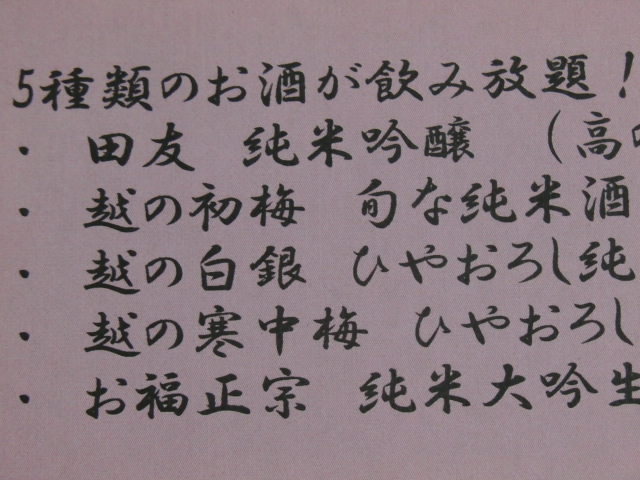 5種類のお酒が飲み放題！
・ 田友 純米吟醸 （高
・ 越の初梅 旬な純米酒
・ 越の白銀 ひやおろし純
・ 越の寒中梅 ひやおろし
・ お福正宗 純米大吟生